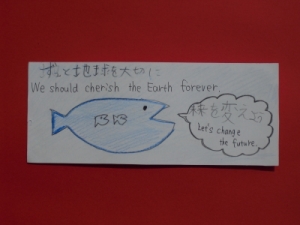 ずっと地球を大切に
We should cherish the Earth forever
を変えよう
Let's change
the future.